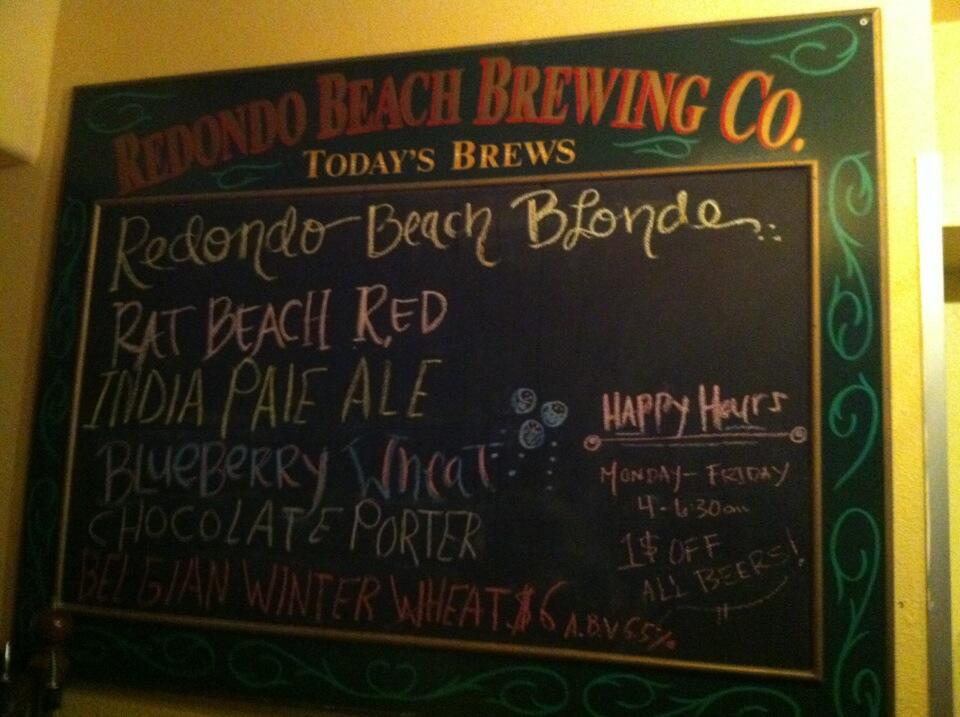 REDONDO BEACH BREWING CO.
TODAY'S BREWS
Redondo Beach Blonde
RAT BEACH RED
INDIA PALE ALE
BLUEBERRY Wheat
CHOCOLATE PORTER
BELGIAN WINTER WHEAT $6 A.B.V 6.5%
HAPPY HOURS
MONDAY - FRIDAY
4-6:30pm
1$ OFF
ALL BEERS!